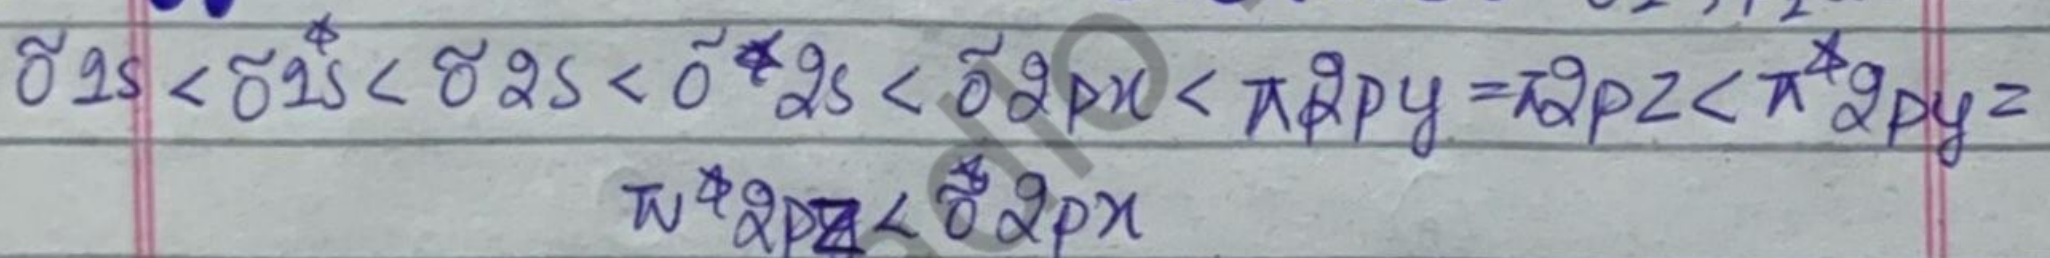 σ1s < σ*1s < σ2s < σ*2s < σ2px < π2py = π2pz < π*2py =
π*2pz < σ*2px